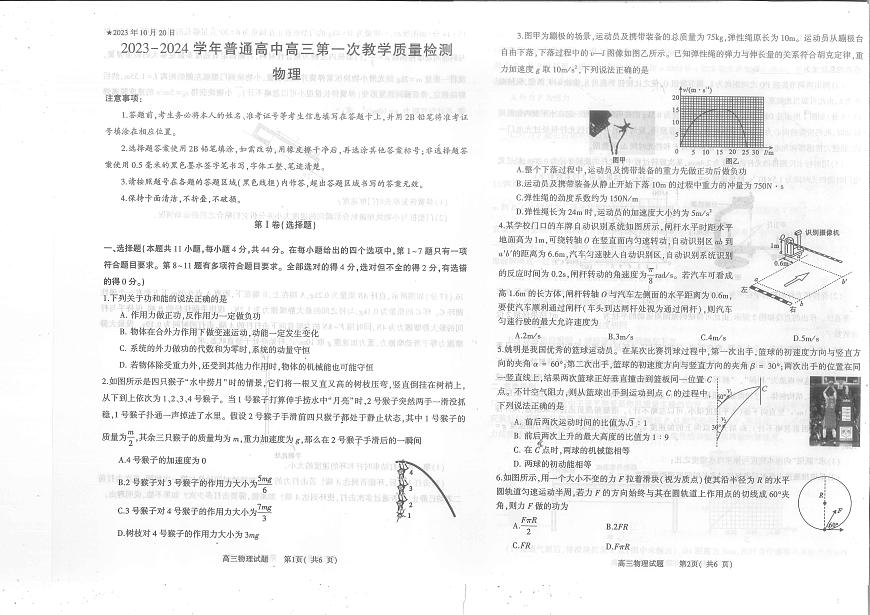 ★2023年10月20日
2023-2024学年普通高中高三第一次教学质量检测
物理
注意事项：
1.答题前,考生务必将本人的姓名、准考证号等考生信息填写在答题卡上,并用2B铅笔将准考证
号填涂在相应位置。
2.选择题答案使用2B铅笔填涂,如需改动,用橡皮擦干净后,再选涂其他答案标号;非选择题答
案使用0.5毫米的黑色墨水签字笔书写,字体工整、笔迹清楚。
3.请按照题号在各题的答题区域(黑色线框)内作答,超出答题区域书写的答案无效。
4.保持卡面清洁,不折叠,不破损。
第Ⅰ卷(选择题)
一、选择题(本题共11小题,每小题4分,共44分。在每小题给出的四个选项中,第1~7题只有一项
符合题目要求。第8~11题有多项符合题目要求。全部选对的得4分,选对但不全的得2分,有选错
的得0分。)
1.下列关于功和能的说法正确的是
A. 作用力做正功,反作用力一定做负功
B. 物体在合外力作用下做变速运动,动能一定发生变化
C. 系统的外力做功的代数和为零时,系统的动量守恒
D. 若物体除受重力外,还受到其他力作用时,物体的机械能也可能守恒
2.如图所示是四只猴子“水中捞月”时的情景,它们将一根又直又高的树枝压弯,竖直倒挂在树梢上,
从下到上依次为1、2、3、4号猴子。当1号猴子打算伸手捞水中“月亮”时,2号猴子突然两手一滑没抓
稳,1号猴子扑通一声掉进了水里。假设2号猴子手滑前四只猴子都处于静止状态,其中1号猴子的
质量为m/2,其余三只猴子的质量均为m,重力加速度为g,那么在2号猴子手滑后的一瞬间
A.4号猴子的加速度为0
B.2号猴子对3号猴子的作用力大小为5mg/6
C.3号猴子对4号猴子的作用力大小为7mg/3
D.树枝对4号猴子的作用力大小为3mg
4
3
2
1
高三物理试题 第1页( 共6 页)
3.图甲为蹦极的场景,运动员及携带装备的总质量为75kg,弹性绳原长为10m。运动员从蹦极台
自由下落,下落过程中的v—l图像如图乙所示。已知弹性绳的弹力与伸长量的关系符合胡克定律,重
力加速度g取10m/s²,下列说法正确的是
v/(m·s⁻¹)
20
15
10
5
0 5 10 15 20 25 30 l/m
图甲
图乙
A.整个下落过程中,运动员及携带装备的重力先做正功后做负功
B.运动员及携带装备从静止开始下落10m的过程中重力的冲量为750N·s
C.弹性绳的劲度系数约为150N/m
D.弹性绳长为24m时,运动员的加速度大小约为5m/s²
4.某学校门口的车牌自动识别系统如图所示,闸杆水平时距水平
地面高为1m,可绕转轴O在竖直面内匀速转动,自动识别区ab到
a′b′的距离为6.6m,汽车匀速驶入自动识别区,自动识别系统识别
的反应时间为0.2s,闸杆转动的角速度为π/8rad/s。若汽车可看成
高1.6m的长方体,闸杆转轴O与汽车左侧面的水平距离为0.6m,
要使汽车顺利通过闸杆(车头到达闸杆处视为通过闸杆),则汽车
匀速行驶的最大允许速度为
识别摄像机
1m
0.6m
a
b
b′
左
右
A.2m/s
B.3m/s
C.4m/s
D.5m/s
5.姚明是我国优秀的篮球运动员。在某次比赛罚球过程中,第一次出手,篮球的初速度方向与竖直方
向的夹角α = 60°;第二次出手,篮球的初速度方向与竖直方向的夹角β = 30°;两次出手的位置在同
一竖直线上,结果两次篮球正好垂直撞击到篮板同一位置C
点。不计空气阻力,则从篮球出手到运动到点C的过程中,
下列说法正确的是
C
60°
30°
A. 前后两次运动时间的比值为√3∶1
B. 前后两次上升的最大高度的比值为1∶9
C. 在C点时,两球的机械能相等
D. 两球的初动能相等
6.如图所示,用一个大小不变的力F拉着滑块(视为质点)使其沿半径为R的水平
圆轨道匀速运动半周,若力F的方向始终与其在圆轨道上作用点的切线成60°夹
角,则力F做的功为
A.FπR/2
B.2FR
C.FR
D.FπR
R
F
60°
高三物理试题 第2页( 共6 页)